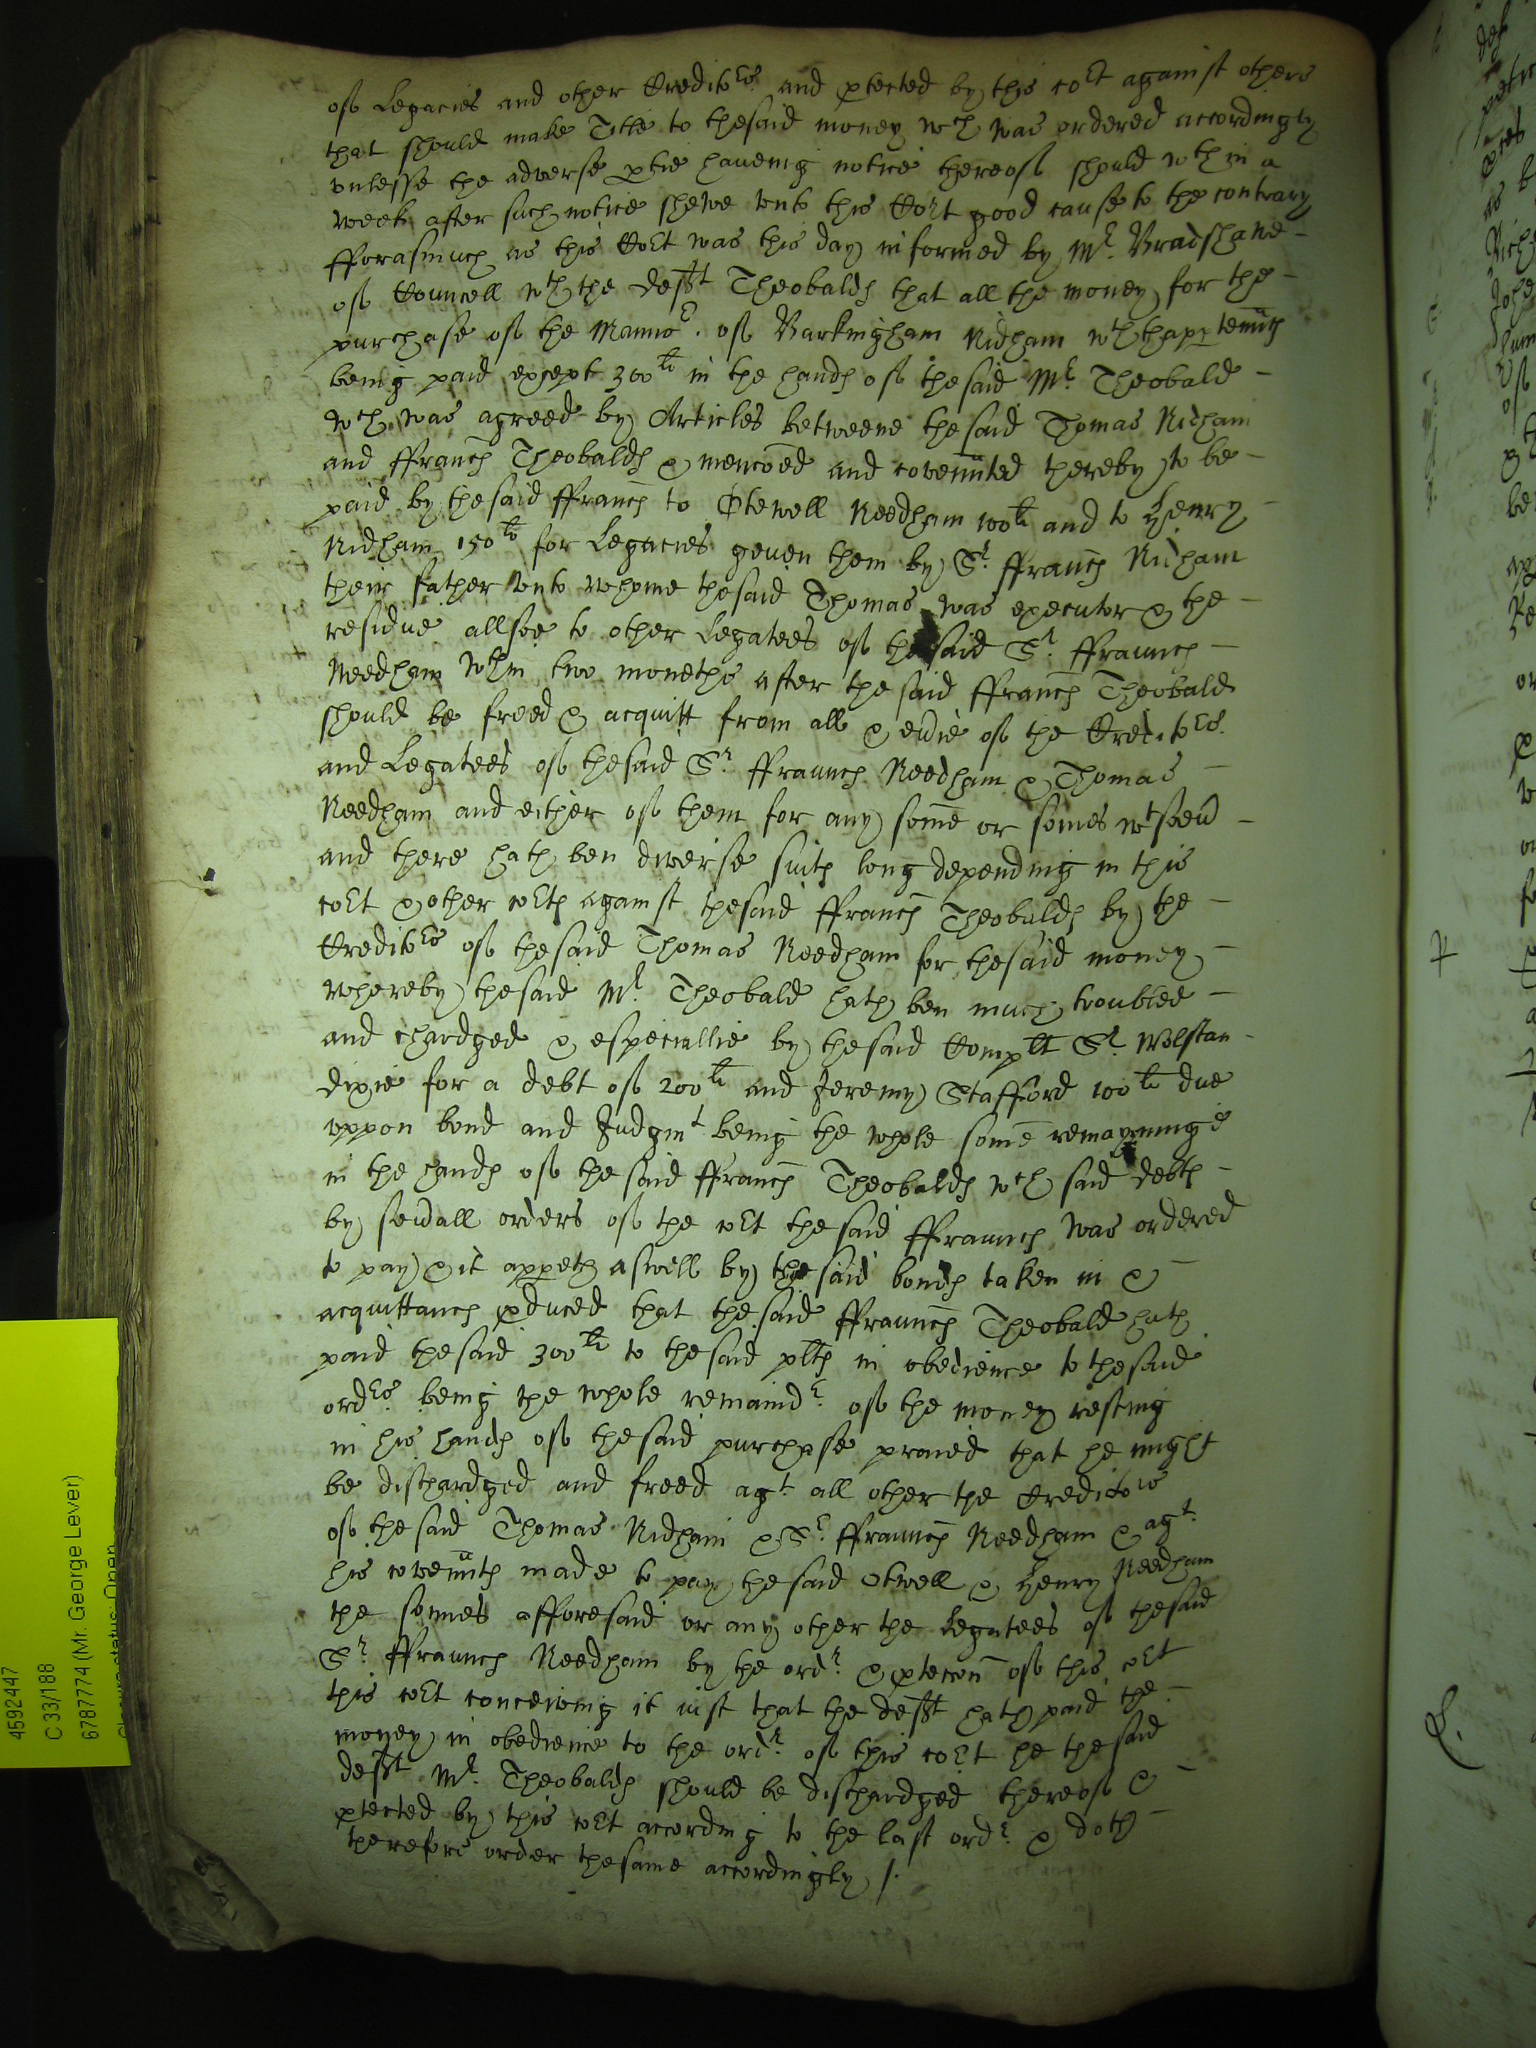 of Legacies and other Creditors and ptected by this Cort against others
that should make Title to thesaid money wch was ordered accordingly
vnlesse the adverse ptie haueing notice thereof should wthin a
week after such notice shewe vnto this Cort good cause to the contrary
fforasmuch as this Cort was this day informed by Mr. Bradshawe
of Councell wth the Deft Theobalds that all the money for the
purchase of the Mannor. of Barkingham Nidham wth thapptennces
being paid except 300li in the hands of thesaid Mr Theobald
wch was agreed by Articles betweene thesaid Thomas Nidham
and ffrancis Theobalds & mencoed and covennted thereby to be
paid by thesaid ffrancis to Otewell Needham 100li and to Henry
Nidham 150li for Legacies geven them by Sr. ffrancis Nidham
their father vnto whome thesaid Thomas was executor & the
residue allsoe to other Legatees of thesaid Sr. ffrauncis
Needham wthin two moneths after the said ffrancis Theobald
should be freed & acquitt from all & euie of the Creditors.
and Legatees of thesaid Sr ffrauncis Needham & Thomas
Needham and either of them for any some or somes wtsoeu
and there hath ben diverse suits long depending in this
cort & other corts against thesaid ffrancis Theobalds by the
Creditors of thesaid Thomas Needham for thesaid money
whereby thesaid Mr. Theobald hath ben much troubled
and chardged & especiallie by thesaid Complt Sr Wolstan
Dixie for a debt of 200li and Jeremy Stafford 100li due
vppon bond and Judgmt being the whole some remayninge
in the hands of the said ffrancis Theobalds wch said debts
by seuall orders of the cort thesaid ffrauncis was ordered
to pay & it appeth aswell by thesaid bonds taken in &
acquittances pduced that the said ffrauncis Theobald hath
paid thesaid 300li to thesaid plts in obedience to thesaid
ordrs being the whole remaindr. of the money resting
in his hands of thesaid purchase praied that he might
be dischardged and freed agt all other the Creditors
of the said Thomas Nidham & Sr ffrauncis Needham & agt.
his covennts made to pay thesaid Otwell & Henry Needham
the somes afforesaid or any other the Legatees of thesaid
Sr. ffrauncis Needham by the ordr. & ptecon of this cort
this cort conceiving it iust that the deft hath paid the
money in obedience to the ordr. of this cort he the said
deft Mr. Theobalds should be dischardged thereof &
ptected by this cort according to the last ordr. & doth
therefore order thesame accordingly /.
4592447
C 33/188
6787774 (Mr. George Lever)